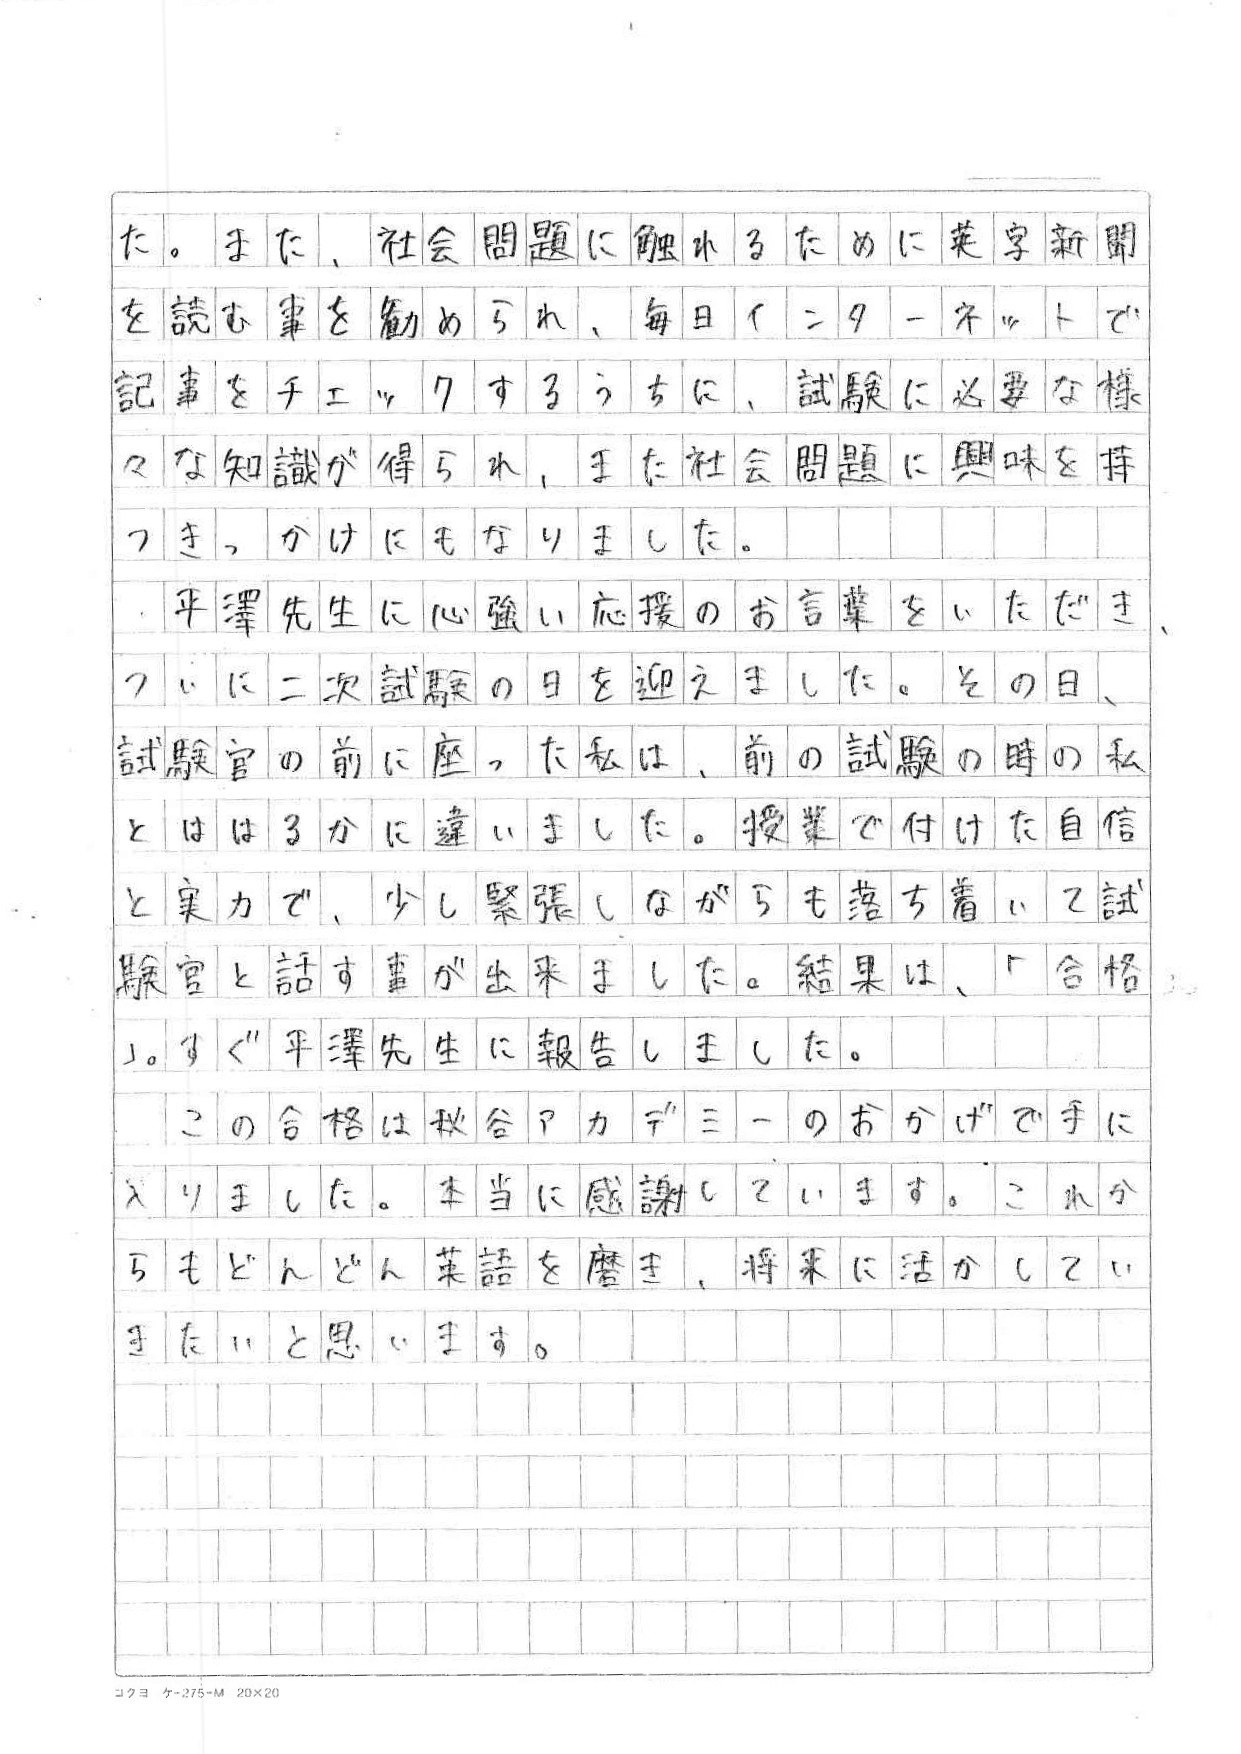 た。また、社会問題に触れるために英字新聞
を読む事を勧められ、毎日インターネットで
記事をチェックするうちに、試験に必要な様
々な知識が得られ、また社会問題に興味を持
つきっかけにもなりました。
平澤先生に心強い応援のお言葉をいただき、
ついに二次試験の日を迎えました。その日、
試験官の前に座った私は、前の試験の時の私
とははるかに違いました。授業で付けた自信
と実力で、少し緊張しながらも落ち着いて試
験官と話す事が出来ました。結果は、「合格
」。すぐ平澤先生に報告しました。
この合格は秋谷アカデミーのおかげで手に
入りました。本当に感謝しています。これか
らもどんどん英語を磨き、将来に活かしてい
きたいと思います。
コクヨ ケ-275-M 20×20